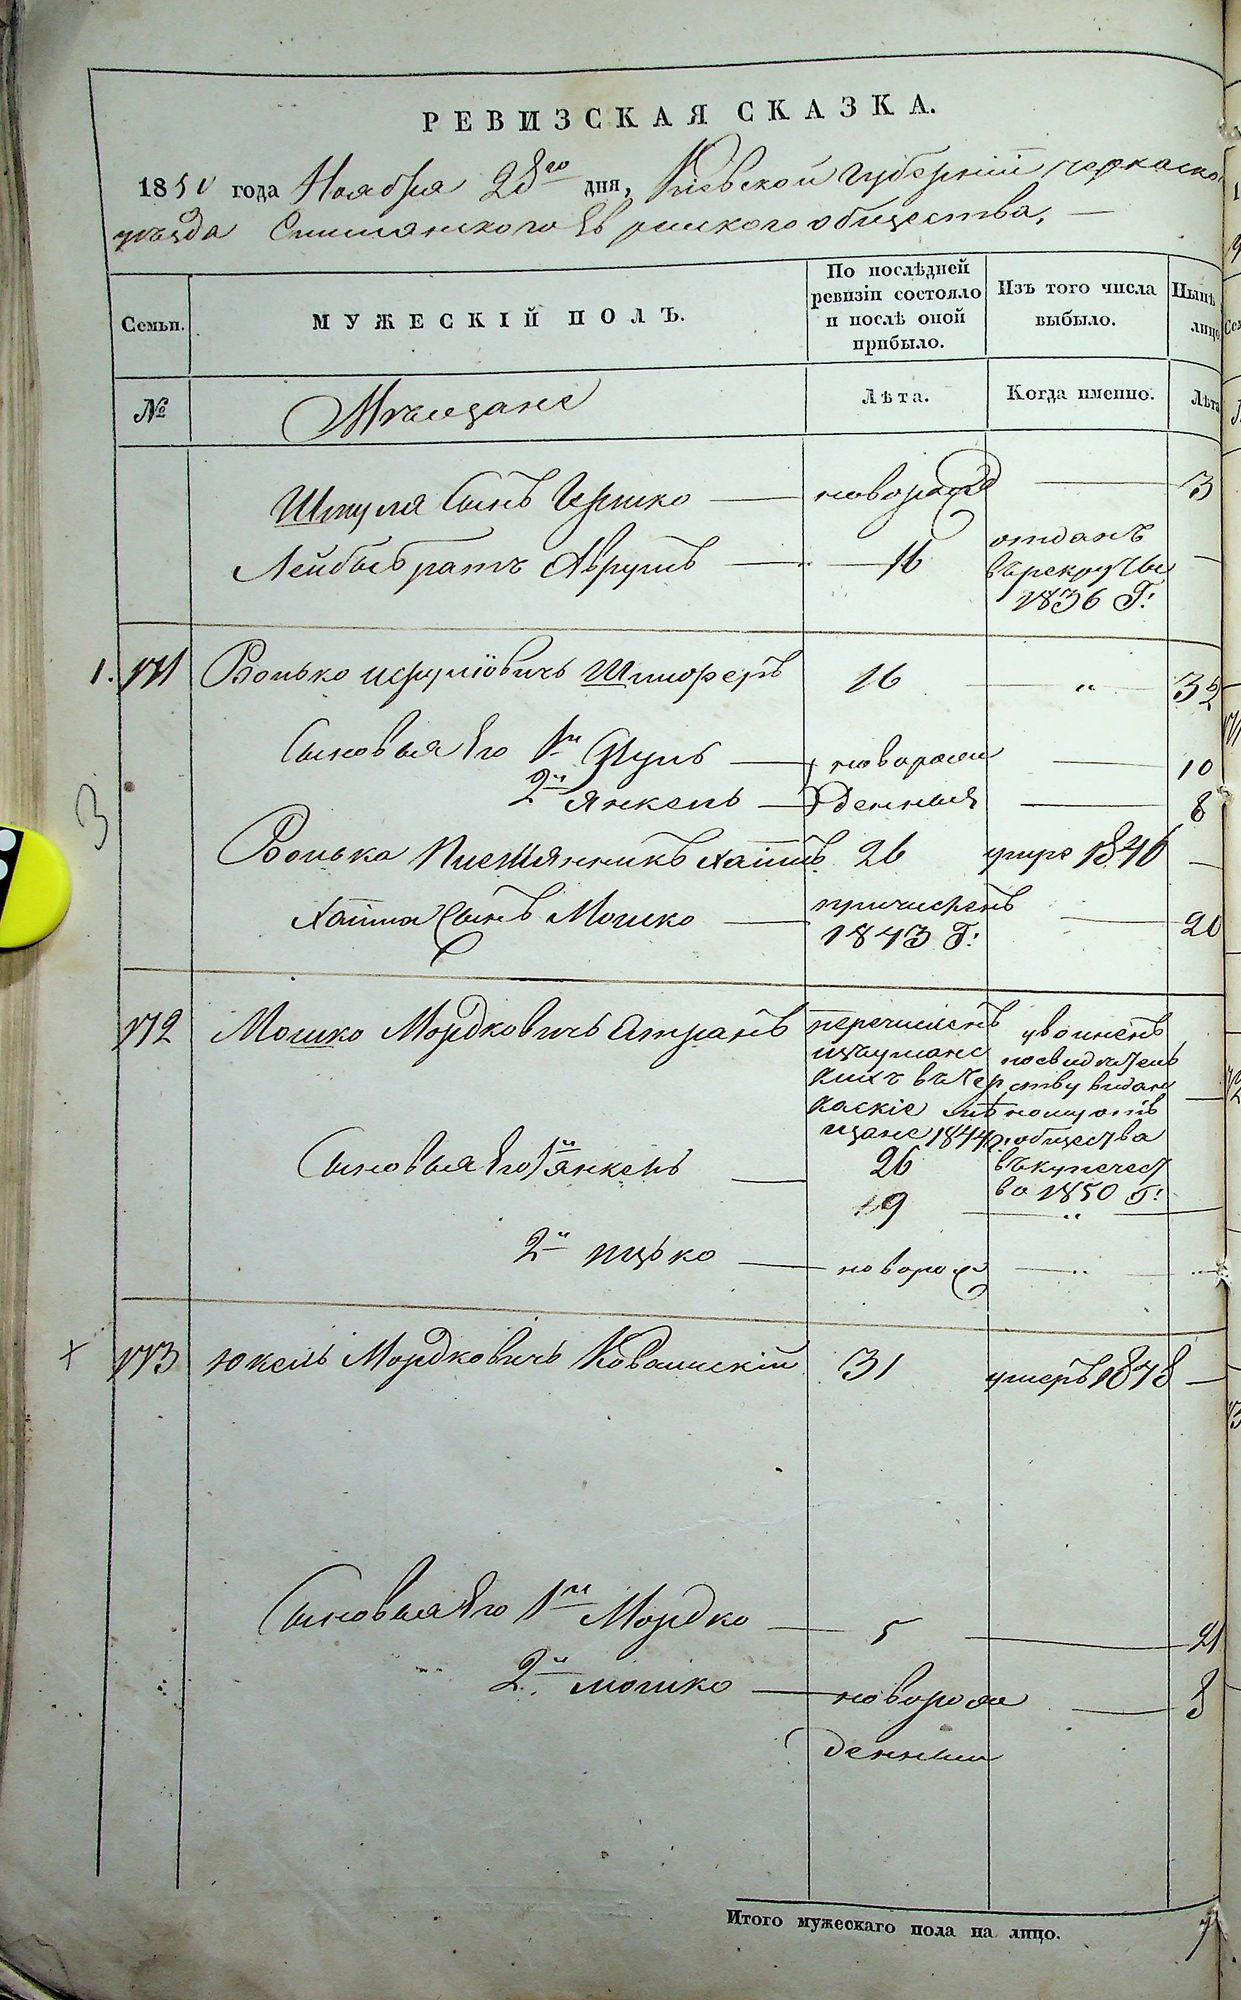 РЕВИЗСКАЯ СКАЗКА.
1850 года Ноября 28го дня, Кіевской Губерніи Черкаско
уѣзда Смилянского Еврейского общества,
Семьи.
МУЖЕСКІЙ ПОЛЪ.
По послѣдней
ревизіи состояло
и послѣ оной
прибыло.
Изъ того числа
выбыло.
Нынѣ
лицо
№
Мѣщане
Лѣта.
Когда именно.
Лѣта
Шмуля Сынъ Гершко — новорожд — 3
Лейбы братъ Аврумъ — 16 отданъ
въ рекруты
1836 Г:
1. 171 Волько Шполеръ 16 „ 32
Сыновья Его 1й Сруль — новорож — 10
2й Янкель — денныя — 8
3
Волька племянникъ Хаимъ 26 умре 1846 —
Хаима Сынъ Мошко — причисленъ
1843 Г: — 20
172 Мошко Мордковичъ
перечисленъ
кихъ въ Чер
каскіе мѣ
щане 1844
26
уволненъ
посвидѣтель
ству видан
ному отъ
общества
въ купечест
во 1850 Г:
Сыновья Его 1й Янкель — 19 „
2й Ицько — новорож „
173 Юкель Мордковичъ 31 умеръ 1848 —
Сыновья Его 1й Мордко — 5 — 21
2й Мошко — новорож — 8
денныи
Итого мужескаго пола на лицо. 7